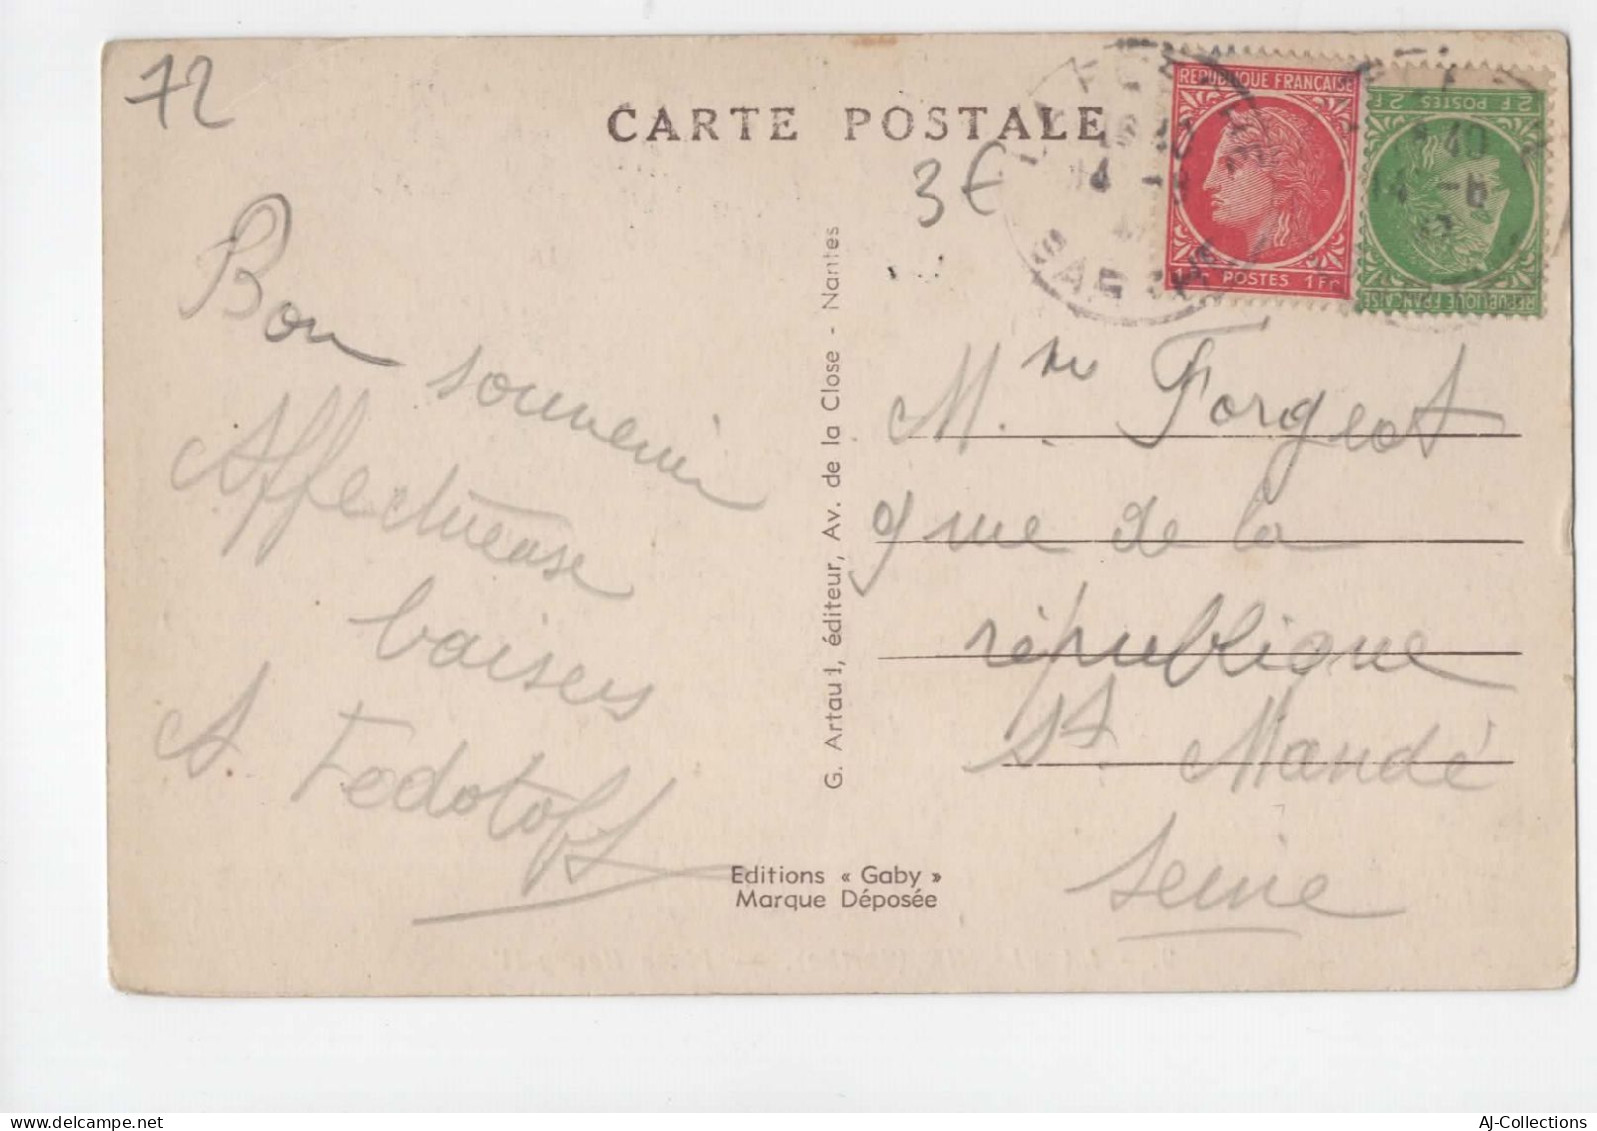 72
CARTE POSTALE
3€
RÉPUBLIQUE FRANÇAISE
POSTES 1Fr
2F POSTES 2F
RÉPUBLIQUE FRANÇAISE
14
40
14 -6
SARTHE
Bon souvenir
Affectueuse
baisers
A. Fedotoff
G. Artaud, éditeur, Av. de la Close - Nantes
Editions « Gaby »
Marque Déposée
Mm Forgeot
9 rue de la
république
St Mandé
Seine
AJ-Collections